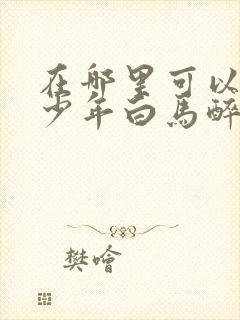 在哪里可以
少年白马醉
樊噲